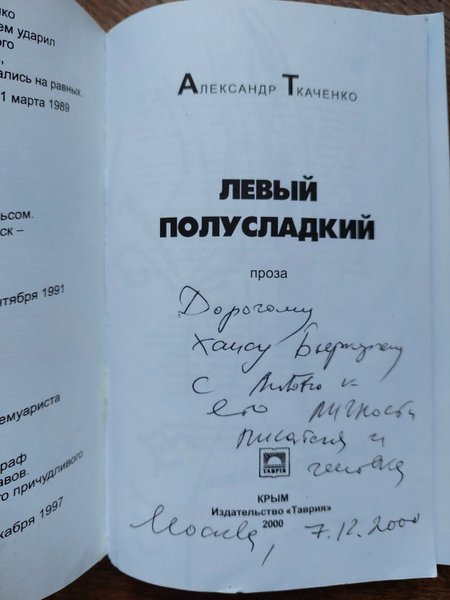 нко
ем ударил
ого
,
ались на равных
1 марта 1989
ьсом.
ск –
нтября 1991
емуариста
раф
авов.
го причудливого
кабря 1997
Александр Ткаченко
ЛЕВЫЙ
ПОЛУСЛАДКИЙ
проза
Дорогому
Хансу
с к
его личности
писателя и
человека
ТАВРІЯ
КРЫМ
Издательство «Таврия»
2000
Москва, 7.12.2000